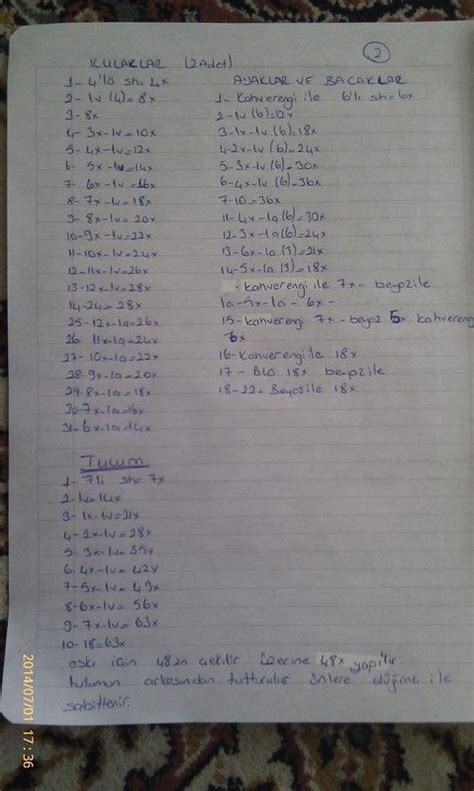 2
KULAKLAR (2 Adet)
1- 4'lü sh= 4x
2- 1v (4)= 8x
3- 8x
4- 3x-1v=10x
5- 4x-1v=12x
6- 5x-1v=14x
7- 6x-1v=16x
8- 7x-1v=18x
9- 8x-1v=20x
10-9x-1v=22x
11-10x-1v=24x
12-11x-1v=26x
13-12x-1v=28x
14-24= 28x
25-12x-1a=26x
26. 11x-1a=24x
27- 10x-1a=22x
28-9x-1a=20x
29-8x-1a=18x
30-7x-1a=16x
31-6x-1a=14x
AYAKLAR VE BACAKLAR
1- Kahverengi ile 6'lı sh=6x
2-1v (6)=12x
3-1x-1v (6)=18x
4-2x-1v (6)=24x
5-3x-1v (6)=30x
6-4x-1v (6)=36x
7-10=36x
11-4x-1a (6)=30x
12-3x-1a(6)=24x
13-6x-1a (3)=21x
14-5x-1a (3)=18x
- kahverengi ile 7x- beyaz ile
1a-5x-1a- 6x-
15-kahverengi 7x-beyaz 5x kahverengi
6x
16-Kahverengi ile 18x
17- BLO 18x beyaz ile
18-22= Beyaz ile 18x
Tulum
1- 7li sh= 7x
2-1v=14x
3- 1x-1v=21x
4-2x-1v=28x
5- 3x-1v=35x
6-4x-1v= 42x
7-5x-1v= 49x
8-6x-1v= 56x
9-7x-1v=63x
10-18=63x
askı için 48zn çekilir üzerine 48x yapılır
tulumun arkasından tutturulur önlere düğme ile
sabitlenir.
2014/07/01 17:36